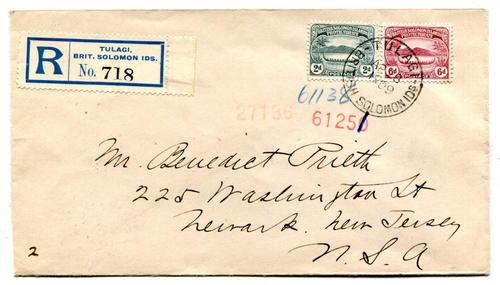 R
TULAGI,
BRIT. SOLOMON IDS.
No. 718
BRITISH SOLOMON ISLANDS
PROTECTORATE
2d 2d
BRITISH SOLOMON ISLANDS
PROTECTORATE
6d 6d
TULAGI
BRITISH SOLOMON IDS.
61138
27136
61250
Mr. Benedict Prieth
225 Washington St
Newark, New Jersey
U.S.A
2